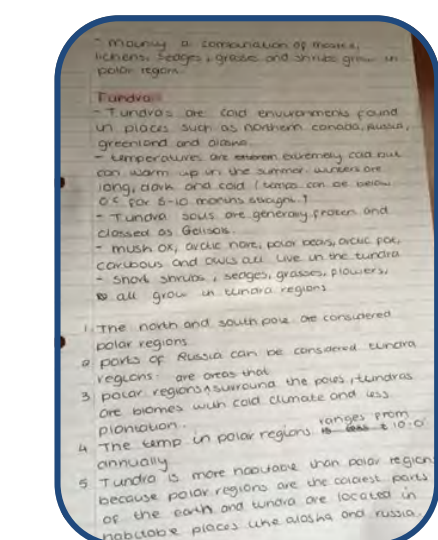 - mainly a combination of mosses,
lichens, sedges, grasses and shrubs grow in
polar regions.
Tundra:
- Tundras are cold environments found
in places such as northern canada, Russia,
greenland and alaska.
- temperatures are extremely cold but
can warm up in the summer. winters are
long, dark and cold (temps can be below
0°c for 6-10 months straight!)
- Tundra soils are generally frozen and
classed as Gelisols.
- mush ox, arctic hare, polar bears, arctic fox,
caribous and owls all live in the tundra
- Short shrubs, sedges, grasses, flowers,
all grow in tundra regions
1. The north and south pole are considered
polar regions
2 parts of Russia can be considered tundra
regions.
are areas that
3 polar regions ^ surround the poles, tundras
are biomes with cold climate and less
plantation.
ranges from
4 The temp in polar regions
annually
5 Tundra is more habitable than polar region
because polar regions are the coldest parts
of the earth and tundra are located in
habitable places like alaska and russia.